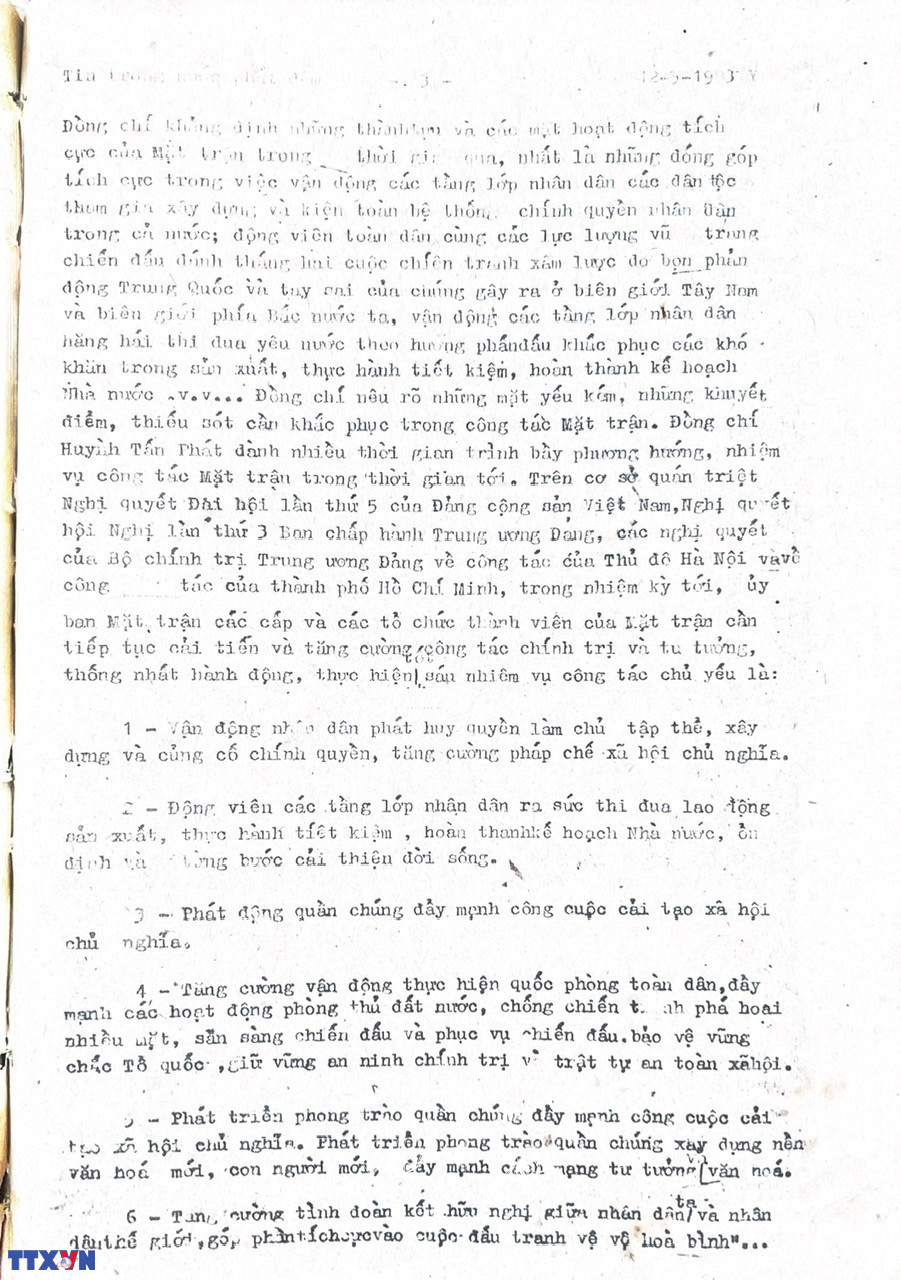 Tin trong nước phát - 3 - 12-5-1983
Đồng chí khẳng định những thànhtựu và các mặt hoạt động tích
cực của Mặt trận trong thời gian qua, nhất là những đóng góp
tích cực trong việc vận động các tầng lớp nhân dân các dân tộc
tham gia xây dựng và kiện toàn hệ thống chính quyền nhân dân
trong cả nước; động viên toàn dân cùng các lực lượng vũ trang
chiến đấu đánh thắng hai cuộc chiến tranh xâm lược do bọn phản
động Trung Quốc và tay sai của chúng gây ra ở biên giới Tây Nam
và biên giới phía Bắc nước ta, vận động các tầng lớp nhân dân
hăng hái thi đua yêu nước theo hướng phấnđấu khắc phục các khó
khăn trong sản xuất, thực hành tiết kiệm, hoàn thành kế hoạch
Nhà nước .v.v... Đồng chí nêu rõ những mặt yếu kém, những khuyết
điểm, thiếu sót cần khắc phục trong công tác Mặt trận. Đồng chí
Huỳnh Tấn Phát dành nhiều thời gian trình bầy phương hướng, nhiệm
vụ công tác Mặt trận trong thời gian tới. Trên cơ sở quán triệt
Nghị quyết Đại hội lần thứ 5 của Đảng cộng sản Việt Nam,Nghị quyết
hội Nghị lần thứ 3 Ban chấp hành Trung ương Đảng, các nghị quyết
của Bộ chính trị Trung ương Đảng về công tác của Thủ đô Hà Nội vàvề
công tác của thành phố Hồ Chí Minh, trong nhiệm kỳ tới, ủy
ban Mặt trận các cấp và các tổ chức thành viên của Mặt trận cần
tiếp tục cải tiến và tăng cường công tác chính trị và tư tưởng,
thống nhất hành động, thực hiện tốt sáu nhiệm vụ công tác chủ yếu là:
1 - Vận động nhân dân phát huy quyền làm chủ tập thể, xây
dựng và củng cố chính quyền, tăng cường pháp chế xã hội chủ nghĩa.
2 - Động viên các tầng lớp nhận dân ra sức thi đua lao động
sản xuất, thực hành tiết kiệm , hoàn thanhkế hoạch Nhà nước, ổn
định và từng bước cải thiện đời sống.
3 - Phát động quần chúng đẩy mạnh công cuộc cải tạo xã hội
chủ nghĩa.
4 - Tăng cường vận động thực hiện quốc phòng toàn dân,đẩy
mạnh các hoạt động phòng thủ đất nước, chống chiến tranh phá hoại
nhiều mặt, sẵn sàng chiến đấu và phục vụ chiến đấu.bảo vệ vững
chắc Tổ quốc ,giữ vững an ninh chính trị và trật tự an toàn xãhội.
5 - Phát triển phong trào quần chúng đẩy mạnh công cuộc cải
tạo xã hội chủ nghĩa. Phát triển phong trào quần chúng xây dựng nền
văn hoá mới, con người mới, đẩy mạnh cách mạng tư tưởng và văn hoá.
6 - Tăng cường tình đoàn kết hữu nghị giữa nhân dân ta và nhân
dânthế giới,góp phầntíchcựcvào cuộc đấu tranh vệ vệ hoà bình"...
TTXVN